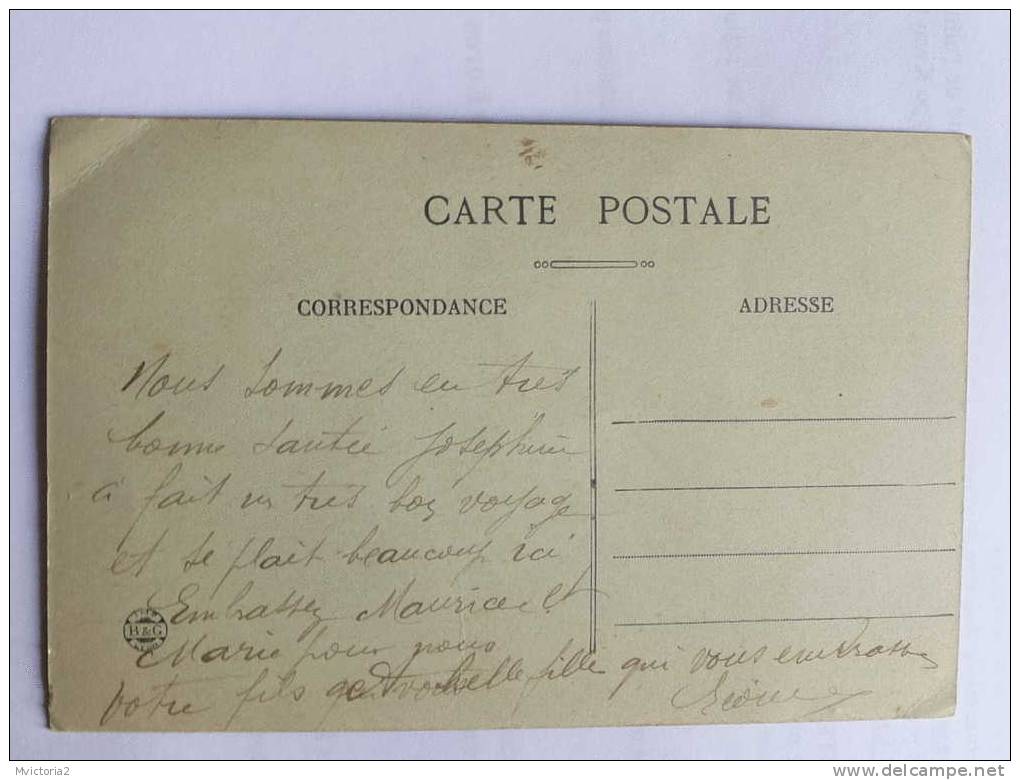 CARTE POSTALE
CORRESPONDANCE
ADRESSE
Nous sommes en très
bonne santée Josephine
a fait un très bon voyage
et se plait beaucoup ici
Embrassez Maurice et
Marie pour nous
votre fils et belle fille qui vous embrasse
B&G
Mvictoria2
www.delcampe.net